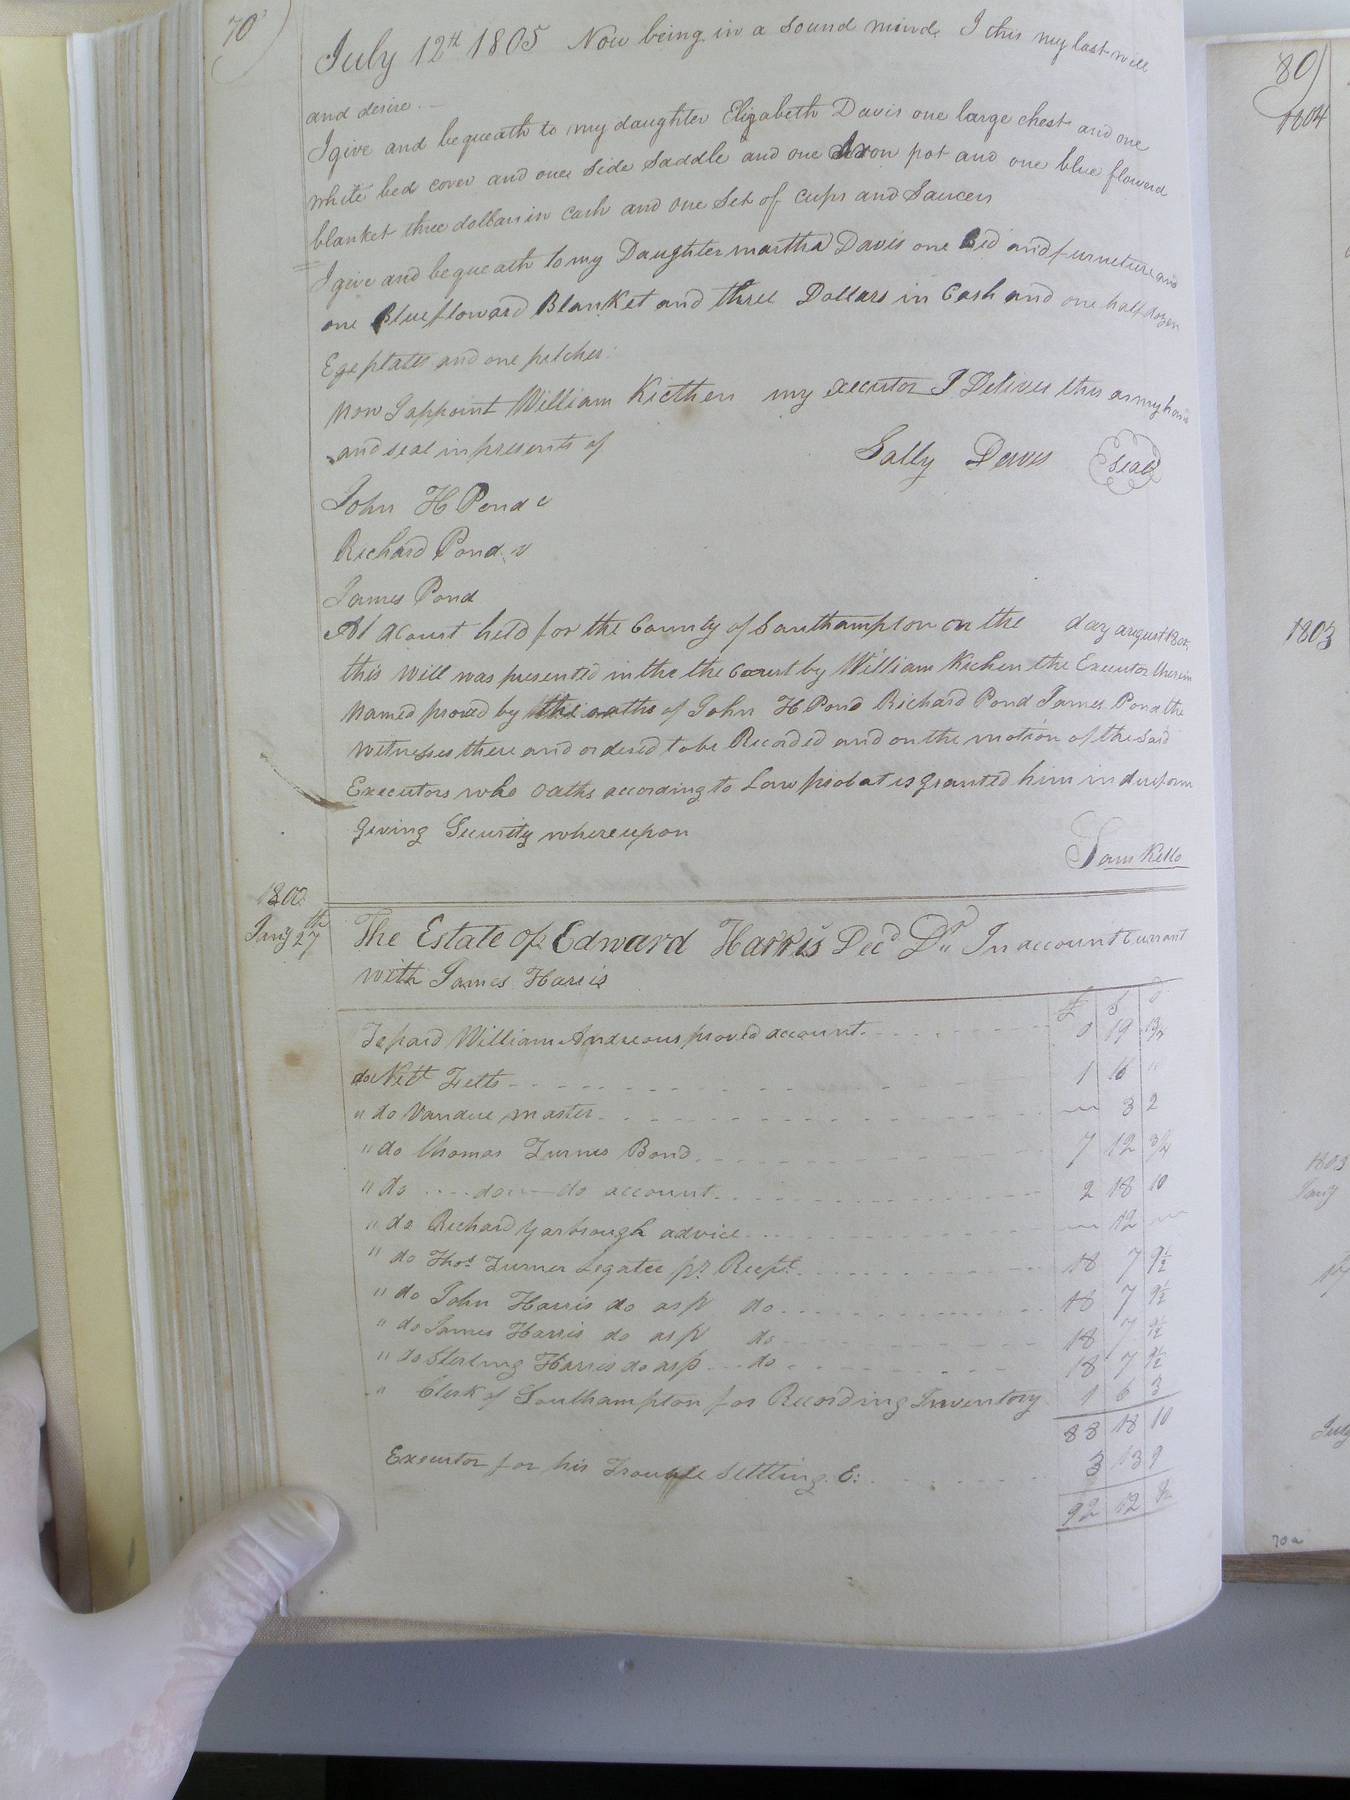 70
July 12th 1805 Now being in a sound mind I this my last will
and desire
I give and bequeath to my daughter Elizabeth Davis one large chest and one
white bed cover and one side saddle and one Iron pot and one blue flowerd
blanket three dollars in cash and one Set of Cups and Saucers
I give and bequeath to my Daughter martha Davis one Bed and furneture and
one Blue floward Blanket and three Dollars in Cash and one half dozen
Ege plates and one pitcher
Now I appoint William Kicthen my executor I Deliver this as my hand
and seal in presents of
Sally Daves Seal
John H Pond
Richard Pond
James Pond
At a Court held for the County of Southampton on the day august 1805
this Will was presented in the the Court by William Kichen the Executor therein
Named proved by the oaths of John H Pond Richard Pond James Pond the
witnesses there and ordered to be Recorded and on the motion of the said
Executors who oaths according to Law probat is granted him in due form
giving Security whereupon
Sam Kello
1800
Jany 27th
The Estate of Edward Harris Decd Dr In account Currant
with James Harris
£ S D
To paid William Andreous proved account 19
do Nett Felts 1 16 "
" do Vandue master 3 2
" do Thomas Turner Bond 7 12
" do do do account 2 18 10
" do Richard Yarbrough advice 12
" do Thos Turner Legatee pr Recpt 18 7 9½
" do John Harris do as pr do 18 7 9½
" do James Harris do as pr do 18 7 9½
" do Sterling Harris do as pr do 18 7 9½
" Clerk of Southampton for Recording Inventory 1 6 3
88 18 10
Executor for his Trouble Settling E: 3 13 9
92 12
80
1804
1803
1803
Jany
July
70a